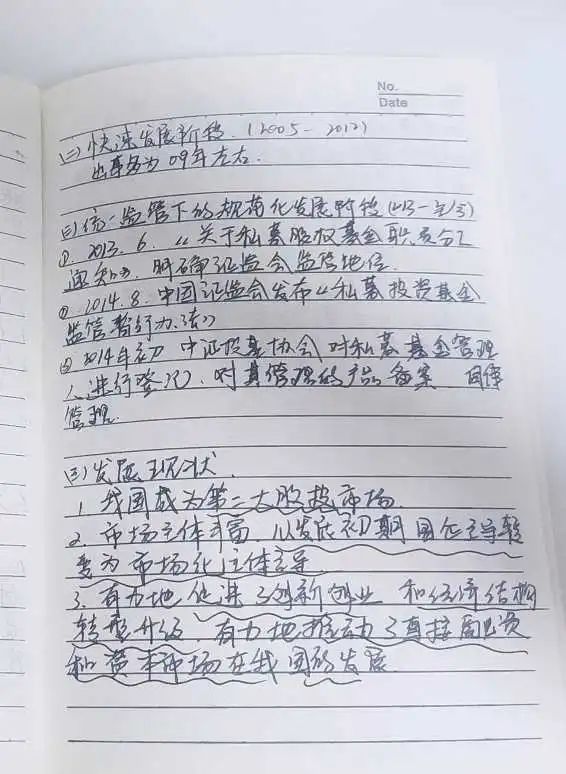 No.
Date
(二)快速发展阶段.(2005-2012)
出事多为09年左右.
(三)统一监管下的规范化发展阶段(2013-至今)
①.2013.6.《关于私募股权基金职责分工
通知》.明确证监会监管地位.
②.2014.8.中国证监会发布《私募投资基金
监管暂行办法》
③2014年初 中证投基协会 对私募基金管理
人进行登记,对其管理的产品备案 自律
管理.
(三)发展现状.
1.我国成为第二大股权市场.
2.市场主体丰富.从发展初期国企主导转
变为市场化主体主导.
3.有力地促进了创新创业 和经济结构
转型升级.有力地推动了直接融资
和资本市场在我国的发展